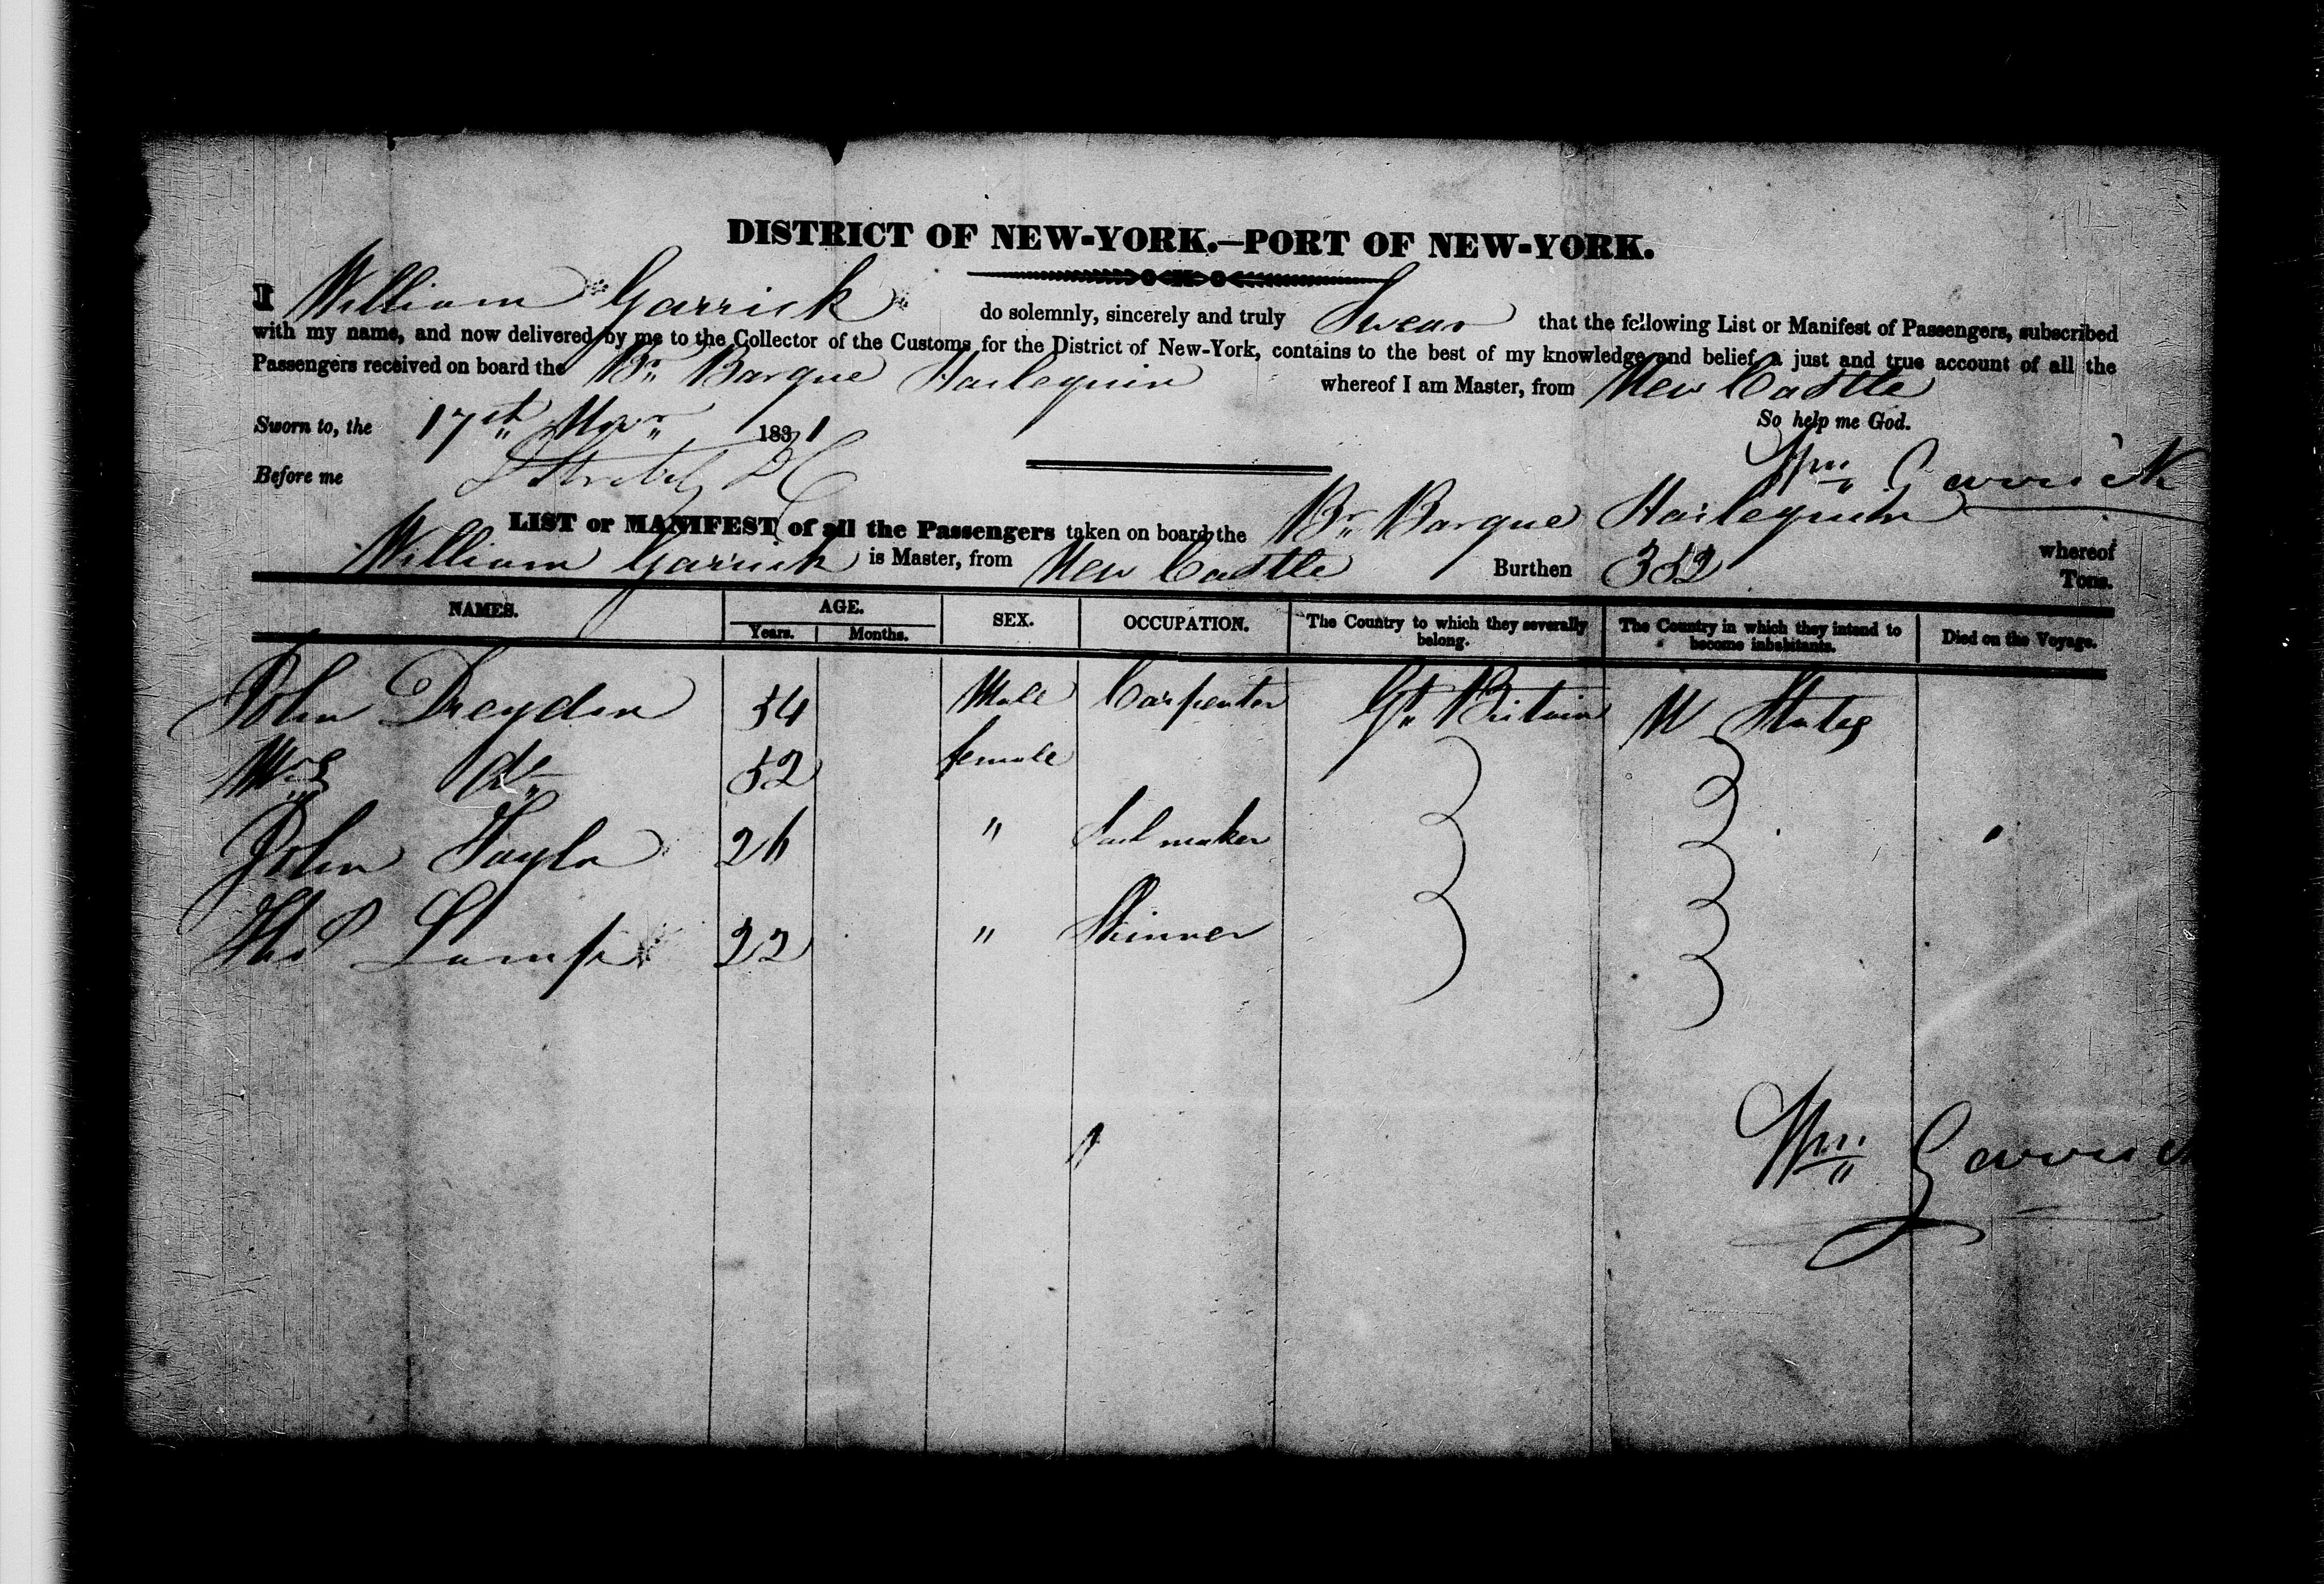 DISTRICT OF NEW-YORK.—PORT OF NEW-YORK.
I William Garrick do solemnly, sincerely and truly Swear that the following List or Manifest of Passengers, subscribed
with my name, and now delivered by me to the Collector of the Customs for the District of New-York, contains to the best of my knowledge and belief, a just and true account of all the
Passengers received on board the Br. Barque Harlequin whereof I am Master, from New Castle
Sworn to, the 17th 1831 So help me God.
Before me Wm Garrick
LIST or MANIFEST of all the Passengers taken on board the Br. Barque Harlequin whereof
William Garrick is Master, from New Castle Burthen 352 Tons.
NAMES. AGE. SEX. OCCUPATION. The Country to which they severally belong. The Country in which they intend to become inhabitants. Died on the Voyage.
Years. Months.
John Dreyden 54 Male Carpenter Gt. Britain U States
Mrs do 52 female
John Taylor 26 " Sail maker
Thos Lamp 22 " Skinner
Wm Garrick